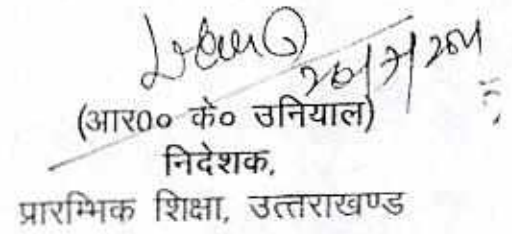 (आर०० के० उनियाल)
निदेशक,
प्रारम्भिक शिक्षा, उत्तराखण्ड